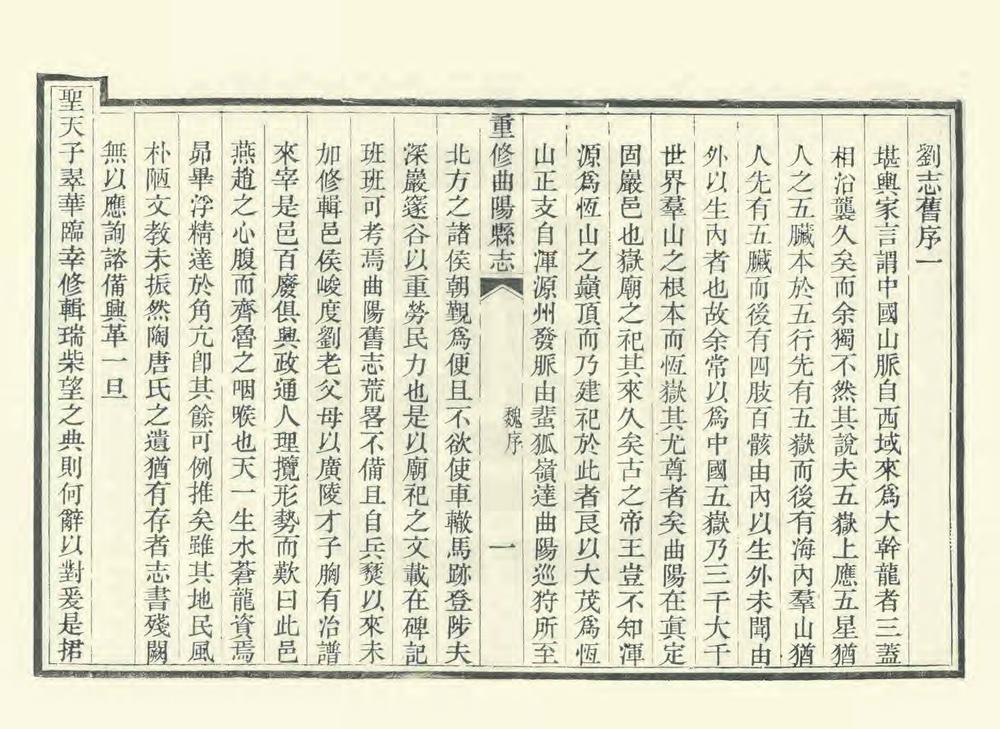 劉志舊序一
堪輿家言謂中國山脈自西域來爲大幹龍者三蓋
相沿襲久矣而余獨不然其說夫五嶽上應五星猶
人之五臟本於五行先有五嶽而後有海內羣山猶
人先有五臟而後有四肢百骸由內以生外未聞由
外以生內者也故余常以爲中國五嶽乃三千大千
世界羣山之根本而恆嶽其尤尊者矣曲陽在眞定
固巖邑也嶽廟之祀其來久矣古之帝王豈不知渾
源爲恆山之巔頂而乃建祀於此者良以大茂爲恆
山正支自渾源州發脈由蜚狐嶺達曲陽巡狩所至
重修曲陽縣志
魏序
一
北方之諸侯朝覲爲便且不欲使車轍馬跡登陟夫
深巖邃谷以重勞民力也是以廟祀之文載在碑記
班班可考焉曲陽舊志荒畧不備且自兵燹以來未
加修輯邑侯峻度劉老父母以廣陵才子胸有冶譜
來宰是邑百廢俱興政通人理攬形勢而歎曰此邑
燕趙之心腹而齊魯之咽喉也天一生水蒼龍資焉
昴畢浮精達於角亢卽其餘可例推矣雖其地民風
朴陋文教未振然陶唐氏之遺猶有存者志書殘闕
無以應詢諮備興革一旦
聖天子翠華臨幸修輯瑞柴望之典則何辭以對爰是捃